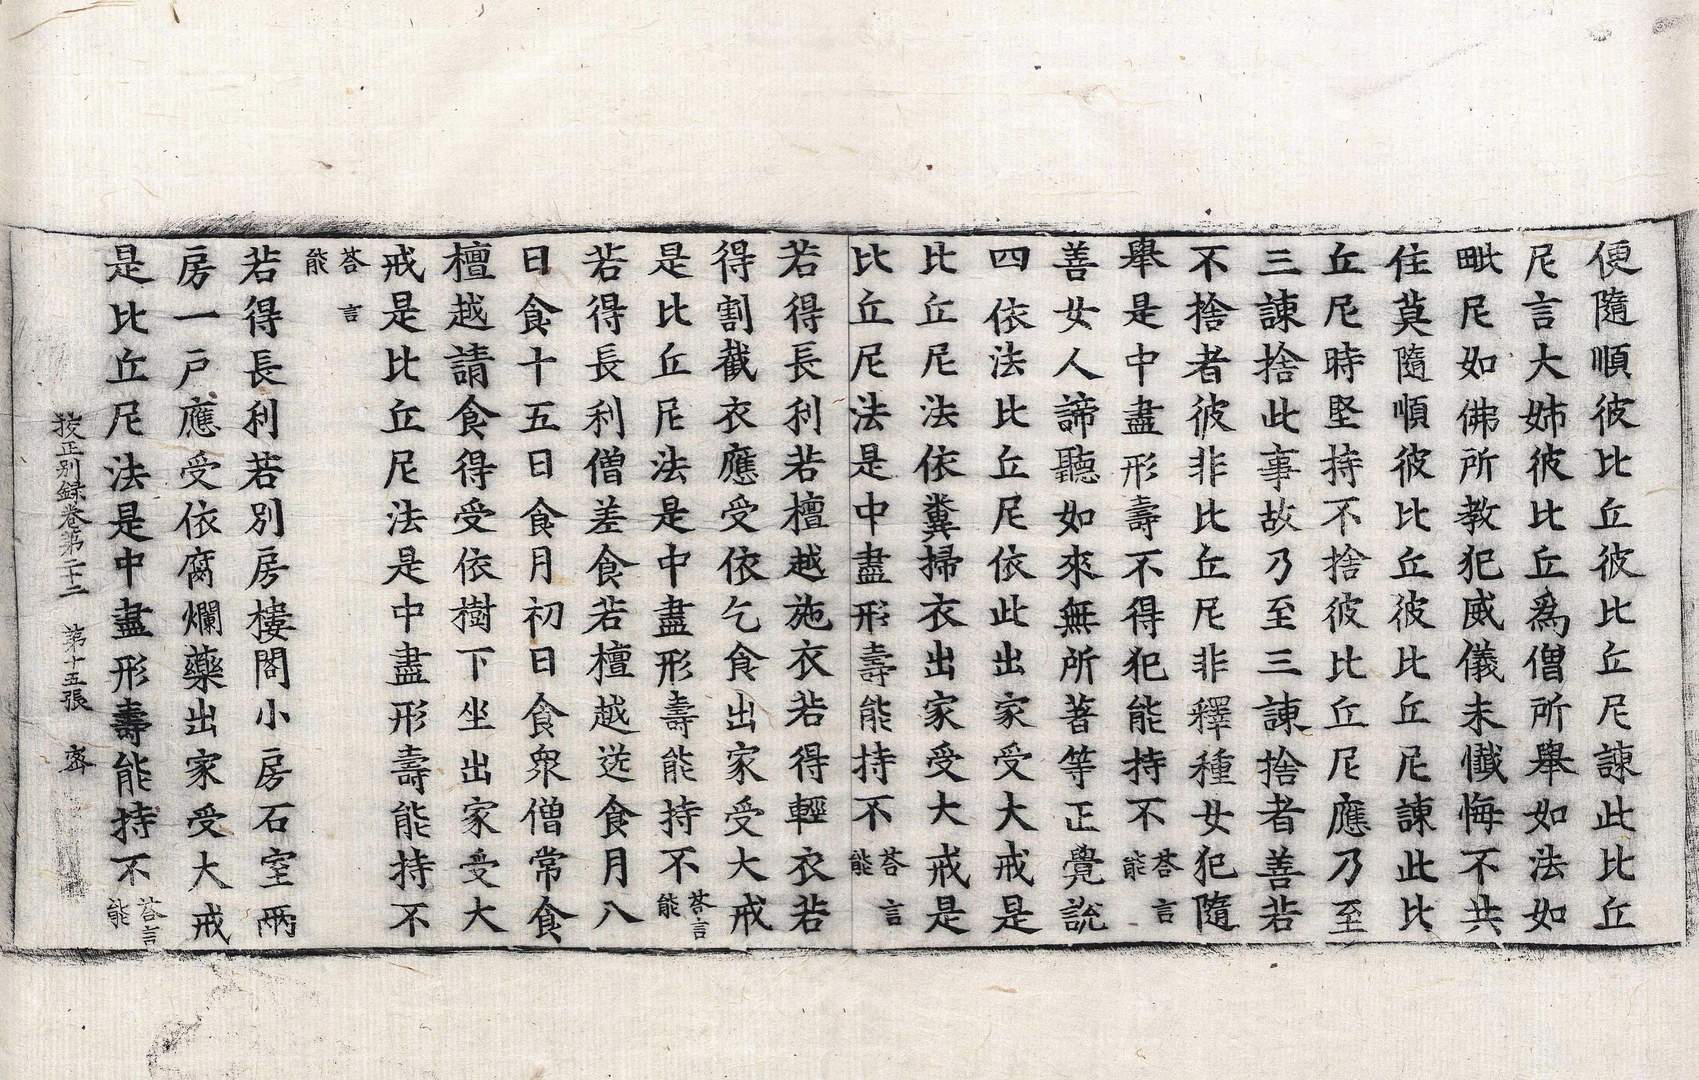 便隨順彼比丘彼比丘尼諫此比丘
尼言大姊彼比丘為僧所舉如法如
毗尼如佛所教犯威儀未懺悔不共
住莫隨順彼比丘彼比丘尼諫此比
丘尼時堅持不捨彼比丘尼應乃至
三諫捨此事故乃至三諫捨者善若
不捨者彼非比丘尼非釋種女犯隨
舉是中盡形壽不得犯能持不荅言能
善女人諦聽如來無所著等正覺說
四依法比丘尼依此出家受大戒是
比丘尼法依糞掃衣出家受大戒是
比丘尼法是中盡形壽能持不荅言能
若得長利若檀越施衣若得輕衣若
得割截衣應受依乞食出家受大戒
是比丘尼法是中盡形壽能持不荅言能
若得長利僧差食若檀越送食月八
日食十五日食月初日食衆僧常食
檀越請食得受依樹下坐出家受大
戒是比丘尼法是中盡形壽能持不
荅言能
若得長利若別房樓閣小房石室兩
房一戶應受依腐爛藥出家受大戒
是比丘尼法是中盡形壽能持不荅言能
挍正別録卷第二十二 第十五張 齊